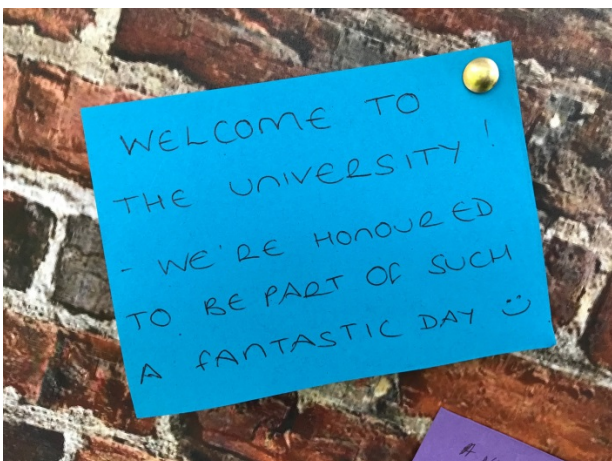 WELCOME TO
THE UNIVERSITY!
- WE'RE HONOURED
TO BE PART OF SUCH
A FANTASTIC DAY :)